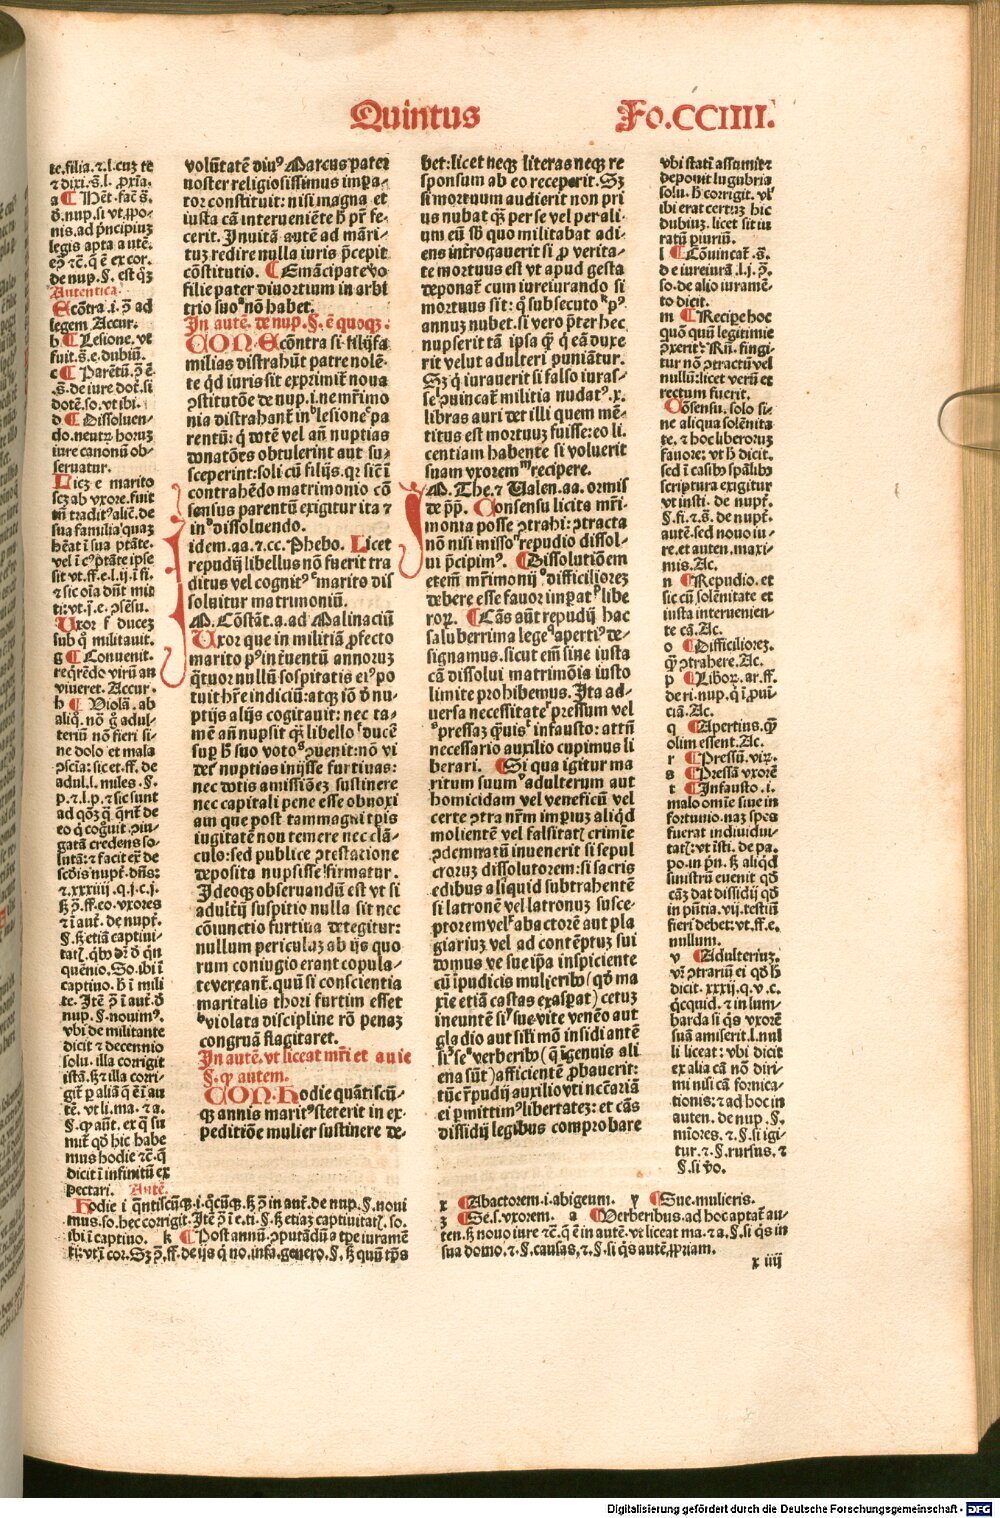 Quintus
Fo.CCIIII.
te.filia.⁊.l.cuz te
⁊ dixi.s̄.l. ꝓxīa.
nis.ad pͥncipiuz
legis apta a utē.
de nup.§. est qͥz
Autentica.
Ecōtra.i.ꝓ ad
legem Accur.
b ¶ Lesione.vt
fuit.s̄.e.dubiū.
c ¶ Parētū.ꝓ ē
.s̄.de iure dot.si
dotē.so.vt ibi.
d ¶ Dissoluen/
do.neutꝝ horuz
iure canonū ob/
seruatur.
Licꝫ e marito
scꝫ ab vxore.fuit
sua familia quaz
hēat ī sua ptāte.
Uxor f ducez
sub ꝙ militauit.
g ¶ Conuenit.
reqͥrēdo virū an
viueret. Accur.
h ¶ Violā.ab
aliqͣ.nō gͣ adul/
teriū nō fieri si/
ne dolo et mala
ꝯscīa:sic et.ff.de
adul.l.miles.§.
p.⁊.l.p.⁊ sic sunt
gatā credens so/
lutā:⁊ facit eꝝ de
⁊.xxxiiij.q.j.c.j.
⁊ ī aut̄.de nupt̄.
§.ꝫ etiā captiui/
quēnio.So.ibi ī
captino.h̄ ī mili
nup.§.nouimꝰ.
vbi de militante
dicit ⁊ decennio
solu.illa corrigit
istā.ꝫ ⁊ illa corri/
tē.vt li.ma.⁊ a.
mit̄ qđ hic habe
mus hodie ⁊c̄.ꝙ
dicit ī infinitū ex
pectari. Autē.
volūtatē diuꝰ Marcus pater
noster religiosissimus impa/
tor constituit:nisi magna et
iusta cā interueniēte h̄ pr̄ fe/
cerit. Inuitā autē ad māri/
tuz redire nulla iuris p̄cepit
cōstitutio. ¶ Emācipate vo
filie pater diuortium in arbi
trio suo nō habet.
In autē. de nup. §. ē quoqꝫ.
CON. Ecōntra si filijfa
milias distrahūt patre nolē/
te qđ iuris sit exprimit̄ noua
ꝯstitutōe de nup.i.ne mr̄imo
nia distrahant̄ in lesione pa
rentū:ꝗ dotē vel añ nuptias
donatōes obtulerint aut su/
sceperint:soli cū filijs.qꝛ sic ī
contrahēdo matrimonio cō
sensus parentū exigitur ita ⁊
in dissoluendo.
Idem.aa.⁊.cc. Phebo. Licet
repudij libellus nō fuerit tra
ditus vel cognitꝰ marito dis
soluitur matrimoniū.
M. Cōstāt.a.ad Malinaciū
Uxor que in militiā ꝓfecto
marito pꝰ int̄uentū annoruz
qͣtuor nullū sospitatis eiꝰ po
tuit hr̄e indiciū:atqꝫ iō ð nu/
ptijs alijs cogitauit:nec ta/
mē añ nupsit qꝫ libello ducē
supꝫ h̄ suo voto ꝯuenit:nō vi
det̄ nuptias inijsse furtiuas:
nec dotis amissiōez sustinere
nec capitali pene esse obnoxi
am que post tam magni tꝑis
iugitatē non temere nec clā/
culo:sed publice ꝯtestatione
deposita nupsisse firmatur.
Ideoqꝫ obseruandū est vt si
adult̄ij suspitio nulla sit nec
cōiunctio furtiua detegitur:
nullum periculaz ab ijs quo
rum coniugio erant copula/
te vereant̄.quū si conscientia
maritalis thori furtim esset
violata discipline rō penaz
congruā flagitaret.
In autē. vt liceat mr̄i et auie
§. ꝙ autem.
CON. Hodie quātiscū/
qꝫ annis maritꝰ steterit in ex/
peditiōe mulier sustinere de/
bet:licet neqꝫ literas neqꝫ re
sponsum ab eo receperit. Sꝫ
si mortuum audierit non pri
us nubat qͣꝫ per se vel per ali/
um eū sb̄ quo militabat adi/
ens int̄rogauerit si ꝓ verita/
te mortuus est vt apud gesta
deponat̄ cum iureiurando si
mortuus sit:ꝙ subsecuto pꝰ
annuz nubet.si vero p̄ter hec
nupserit tā ipsa qͣꝫ ꝗ eā duxe
rit velut adulteri puniātur.
Sꝫ ꝗ iurauerit si falso iuras/
se ꝯuincat̄ militia nudatꝰ.x.
libras auri det illi quem mē/
titus est mortuuz fuisse:eo li.
centiam habente si voluerit
suam vxorem recipere.
IM. The.⁊ Ualen.aa.ormis
de p̄p̄. Consensu licita mr̄i/
monia posse ꝯtrahi:ꝯtracta
nō nisi misso repudio dissol/
ui p̄cipimꝰ. ¶ Dissolutiōem
etem̄ mr̄imonij difficiliorez
debere esse fauor impat̄ libe
roꝝ. ¶ Cās aūt repudij hac
saluberrima lege apertiꝰ de/
signamus.sicut em̄ sine iusta
cā dissolui matrimōia iusto
limite prohibemus. Ita ad/
uersa necessitate pressum vel
pressaz qͣuis infausto:attn̄
necessario auxilio cupimus li
berari. ¶ Si qua igitur ma
ritum suum adulterum aut
homicidam vel veneficū vel
certe ꝯtra nr̄m impiuz aliqͥd
molientē vel falsitatꝭ crimie
ꝯdemnatū inuenerit si sepul
croruz dissolutorem:si sacris
edibus aliquid subtrahentē
si latronē vel latronuz susce/
ptorem vel abactorē aut pla
giariuz vel ad contēptuz sui
domus ve sue ip̄a inspiciente
cū īpudicis mulieribꝰ (qđ ma
xīe etiā castas exaspat) cetuz
ineuntē si sue vite venēo aut
gladio aut sili mō insidiantē
si se verberibꝰ (ꝗ īgennis ali
ena sūt) afficientē ꝓbauerit:
tūc r̄pudij auxilio vti nc̄cariā
ei pmittimꝰ libertatez:et cās
dissidij legibus comprobare
vbi statī assumit̄
deponit lugubria
solu.h̄ corrigit.vl̓
ibi erat certuz hic
dubiuz.licet sit iu
l ¶ Cōuincat̄.s̄.
de iureiurā.l.j.ꝓ.
so.de alio iuramē/
to dicit.
m ¶ Recipe hoc
quō quū legitimie
tur nō ꝯtractū vel
nulluz:licet verū et
rectum fuerit.
Cōsensu.solo si/
ne aliqua solēnita
te.⁊ hoc liberoruz
fauore:vt h̄ dicit.
sed ī casibꝰ spālibꝰ
scriptura exigitur
vt insti.de nupt̄.
§.fi.⁊.s̄.de nupt̄.
autē.sed nouo iu/
re.et auten.maxi/
mis.Ac.
n ¶ Repudio.et
sic cū solēnitate et
iusta interuenien/
te cā.Ac.
o ¶ Difficiliorez.
qͣꝫ ꝯtrahere.Ac.
p ¶ Liboꝝ.ar.ff.
de ri.nup.ꝗ ī ꝓui/
ciā.Ac.
q ¶ Apertius.qͣꝫ
olim essent.Ac.
r ¶ Pressū.viꝝ.
s ¶ Pressā vxorē
t ¶ Infausto.i.
malo omīe siue in
fortunio.naꝫ spes
fuerat indiuidui/
tatꝭ:vt īsti.de pa.
po.in pͥn.ꝫ aliqͥd
sinistrū euenit qđ
cāz dat dissidij qđ
in pn̄tia.vij.testiū
fieri debet:vt.ff.e.
nullum.
v ¶ Adulteriuz.
dicit.xxxij.q.v.c.
qͥcquid.⁊ in lum/
barda si qͥs vxorē
suā amiserit.l.nul
li liceat:vbi dicit
ex alia cā nō diri/
mi nisi cā fornica/
tionis:⁊ ad hoc in
auten.de nup.§.
mīores.⁊.§.si igi/
tur.⁊.§.rursus.⁊
§.si vo.
Hodie ī qͣntiscūqꝫ.i.qͣcūqꝫ.ꝫ ꝓ in aut̄.de nup.§.noui
mus.so.hec corrigit.Itē ꝓ ī e.ti.§.ꝫ etiaz captiuitatꝭ.so.
ibi ī captino. k ¶ Post annū.ꝯputādū a tꝑe iuramē
x ¶ Abactorem.i.abigeum. y ¶ Sue.mulieris.
z ¶ Se.s.vxorem. a ¶ Uerberibus.ad hoc aptat̄ au/
ten.ꝫ nouo iure ⁊c̄.ꝙ ē in autē.vt liceat ma.⁊ a.§.si qͥs in
sua domo.⁊.§.causas.⁊.§.si qͥs autē.ꝓpriam.
x iiij
Digitalisierung gefördert durch die Deutsche Forschungsgemeinschaft - DFG